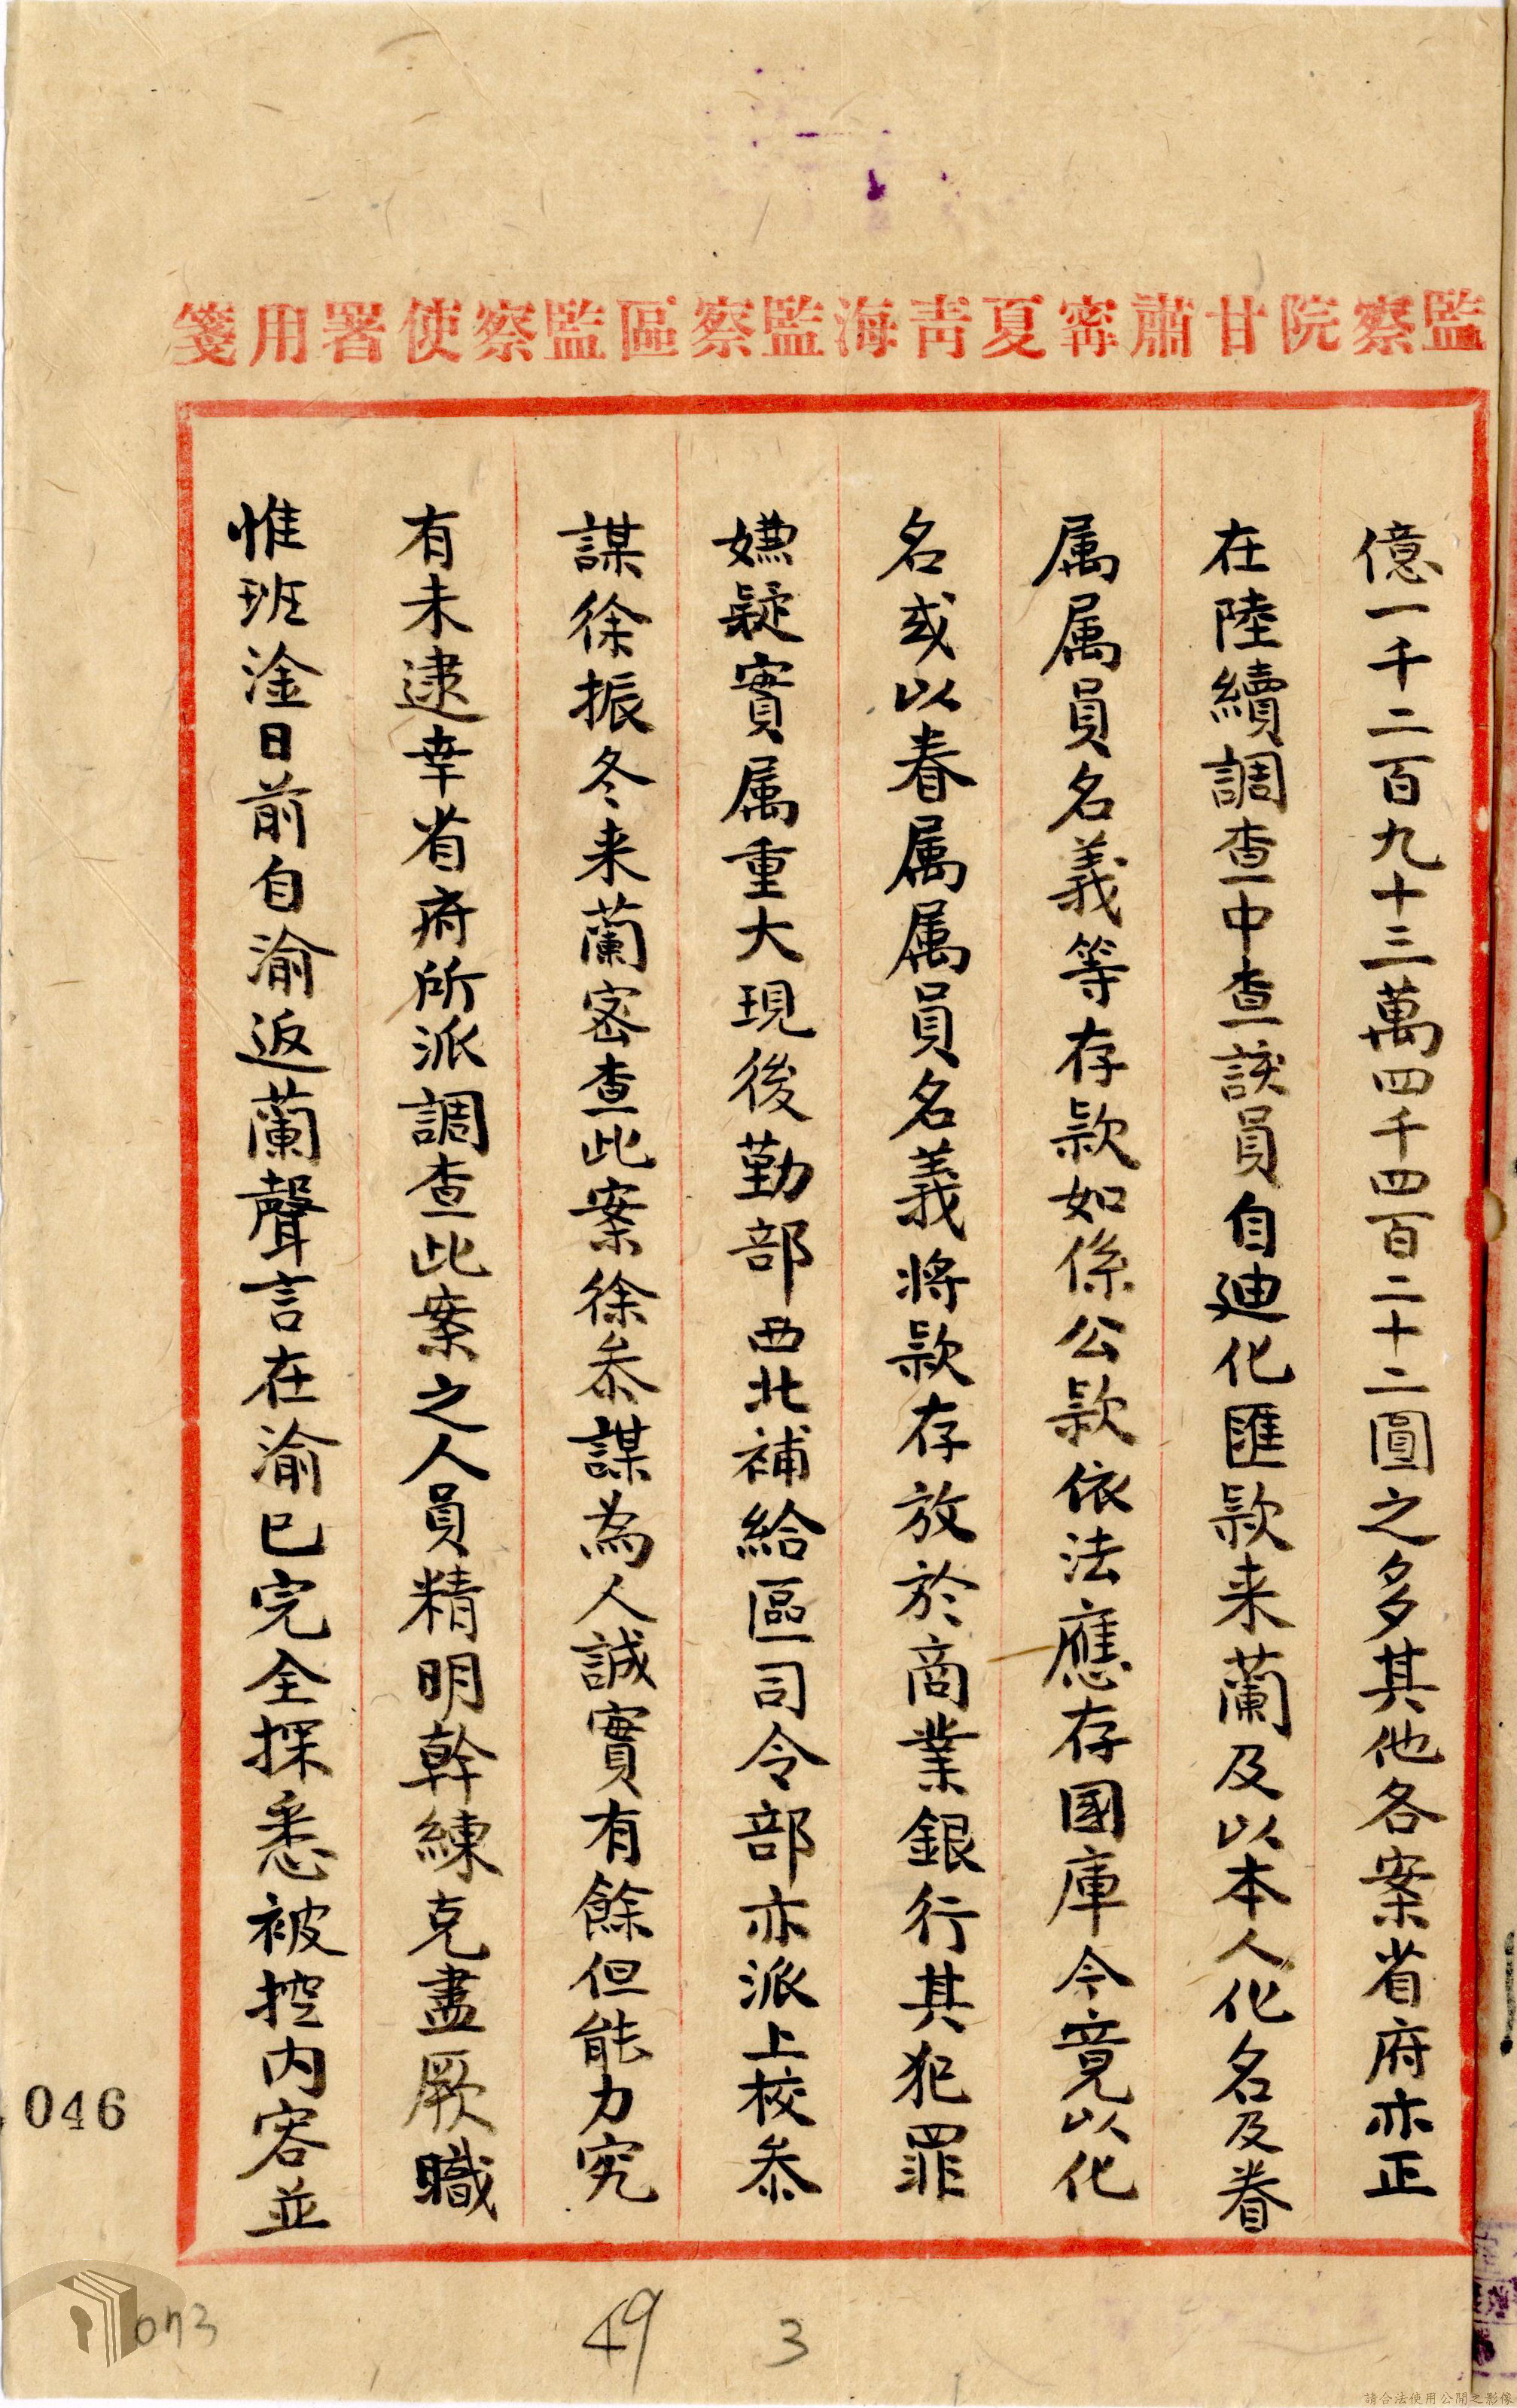 監察院甘肅寧夏青海監察區監察使署用箋
億一千二百九十三萬四千四百二十二圓之多其他各案省府亦正
在陸續調查中查該員自迪化匯款来蘭及以本人化名及眷
属属員名義等存款如係公款依法應存國庫今竟以化
名或以眷属属員名義將款存放於商業銀行其犯罪
嫌疑實属重大現後勤部西北補給區司令部亦派上校叅
謀徐振冬来蘭密查此案徐叅謀為人誠實有餘但能力究
有未逮幸省府所派調查此案之人員精明幹練克盡厥職
惟班淦日前自渝返蘭聲言在渝已完全探悉被控内容並
046
073
49
3
請合法使用公開之影像